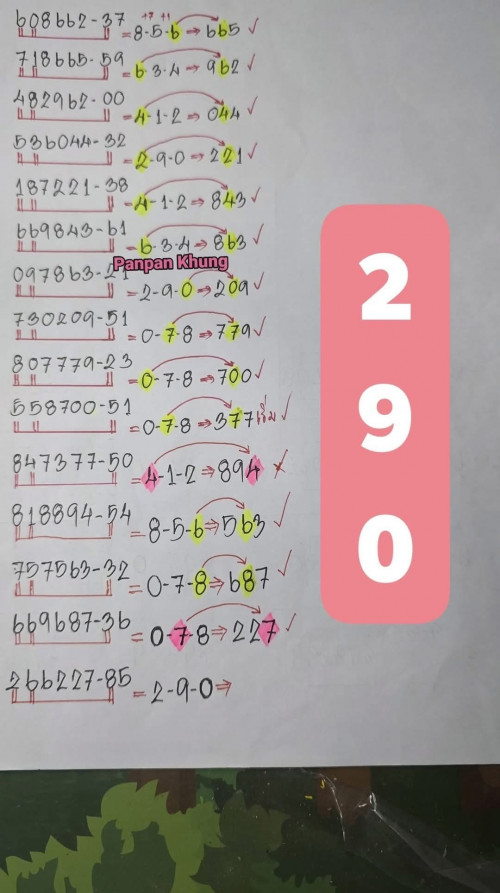 +7 +1
608662-37 = 8-5-6 ⇒ 665 ✓
718665-59 = 6-3-4 ⇒ 962 ✓
482962-00 = 4-1-2 ⇒ 044 ✓
536044-32 = 2-9-0 ⇒ 221 ✓
187221-38 = 4-1-2 ⇒ 843 ✓
669843-61 = 6-3-4 ⇒ 863 ✓
Panpan Khung
097863-21 = 2-9-0 ⇒ 209 ✓
730209-51 = 0-7-8 ⇒ 779 ✓
807779-23 = 0-7-8 ⇒ 700 ✓
558700-51 = 0-7-8 ⇒ 377 ✓
847377-50 = 4-1-2 ⇒ 894 ×
818894-54 = 8-5-6 ⇒ 563 ✓
757563-32 = 0-7-8 ⇒ 687 ✓
669687-36 = 0-7-8 ⇒ 227 ✓
266227-85 = 2-9-0 ⇒
2
9
0